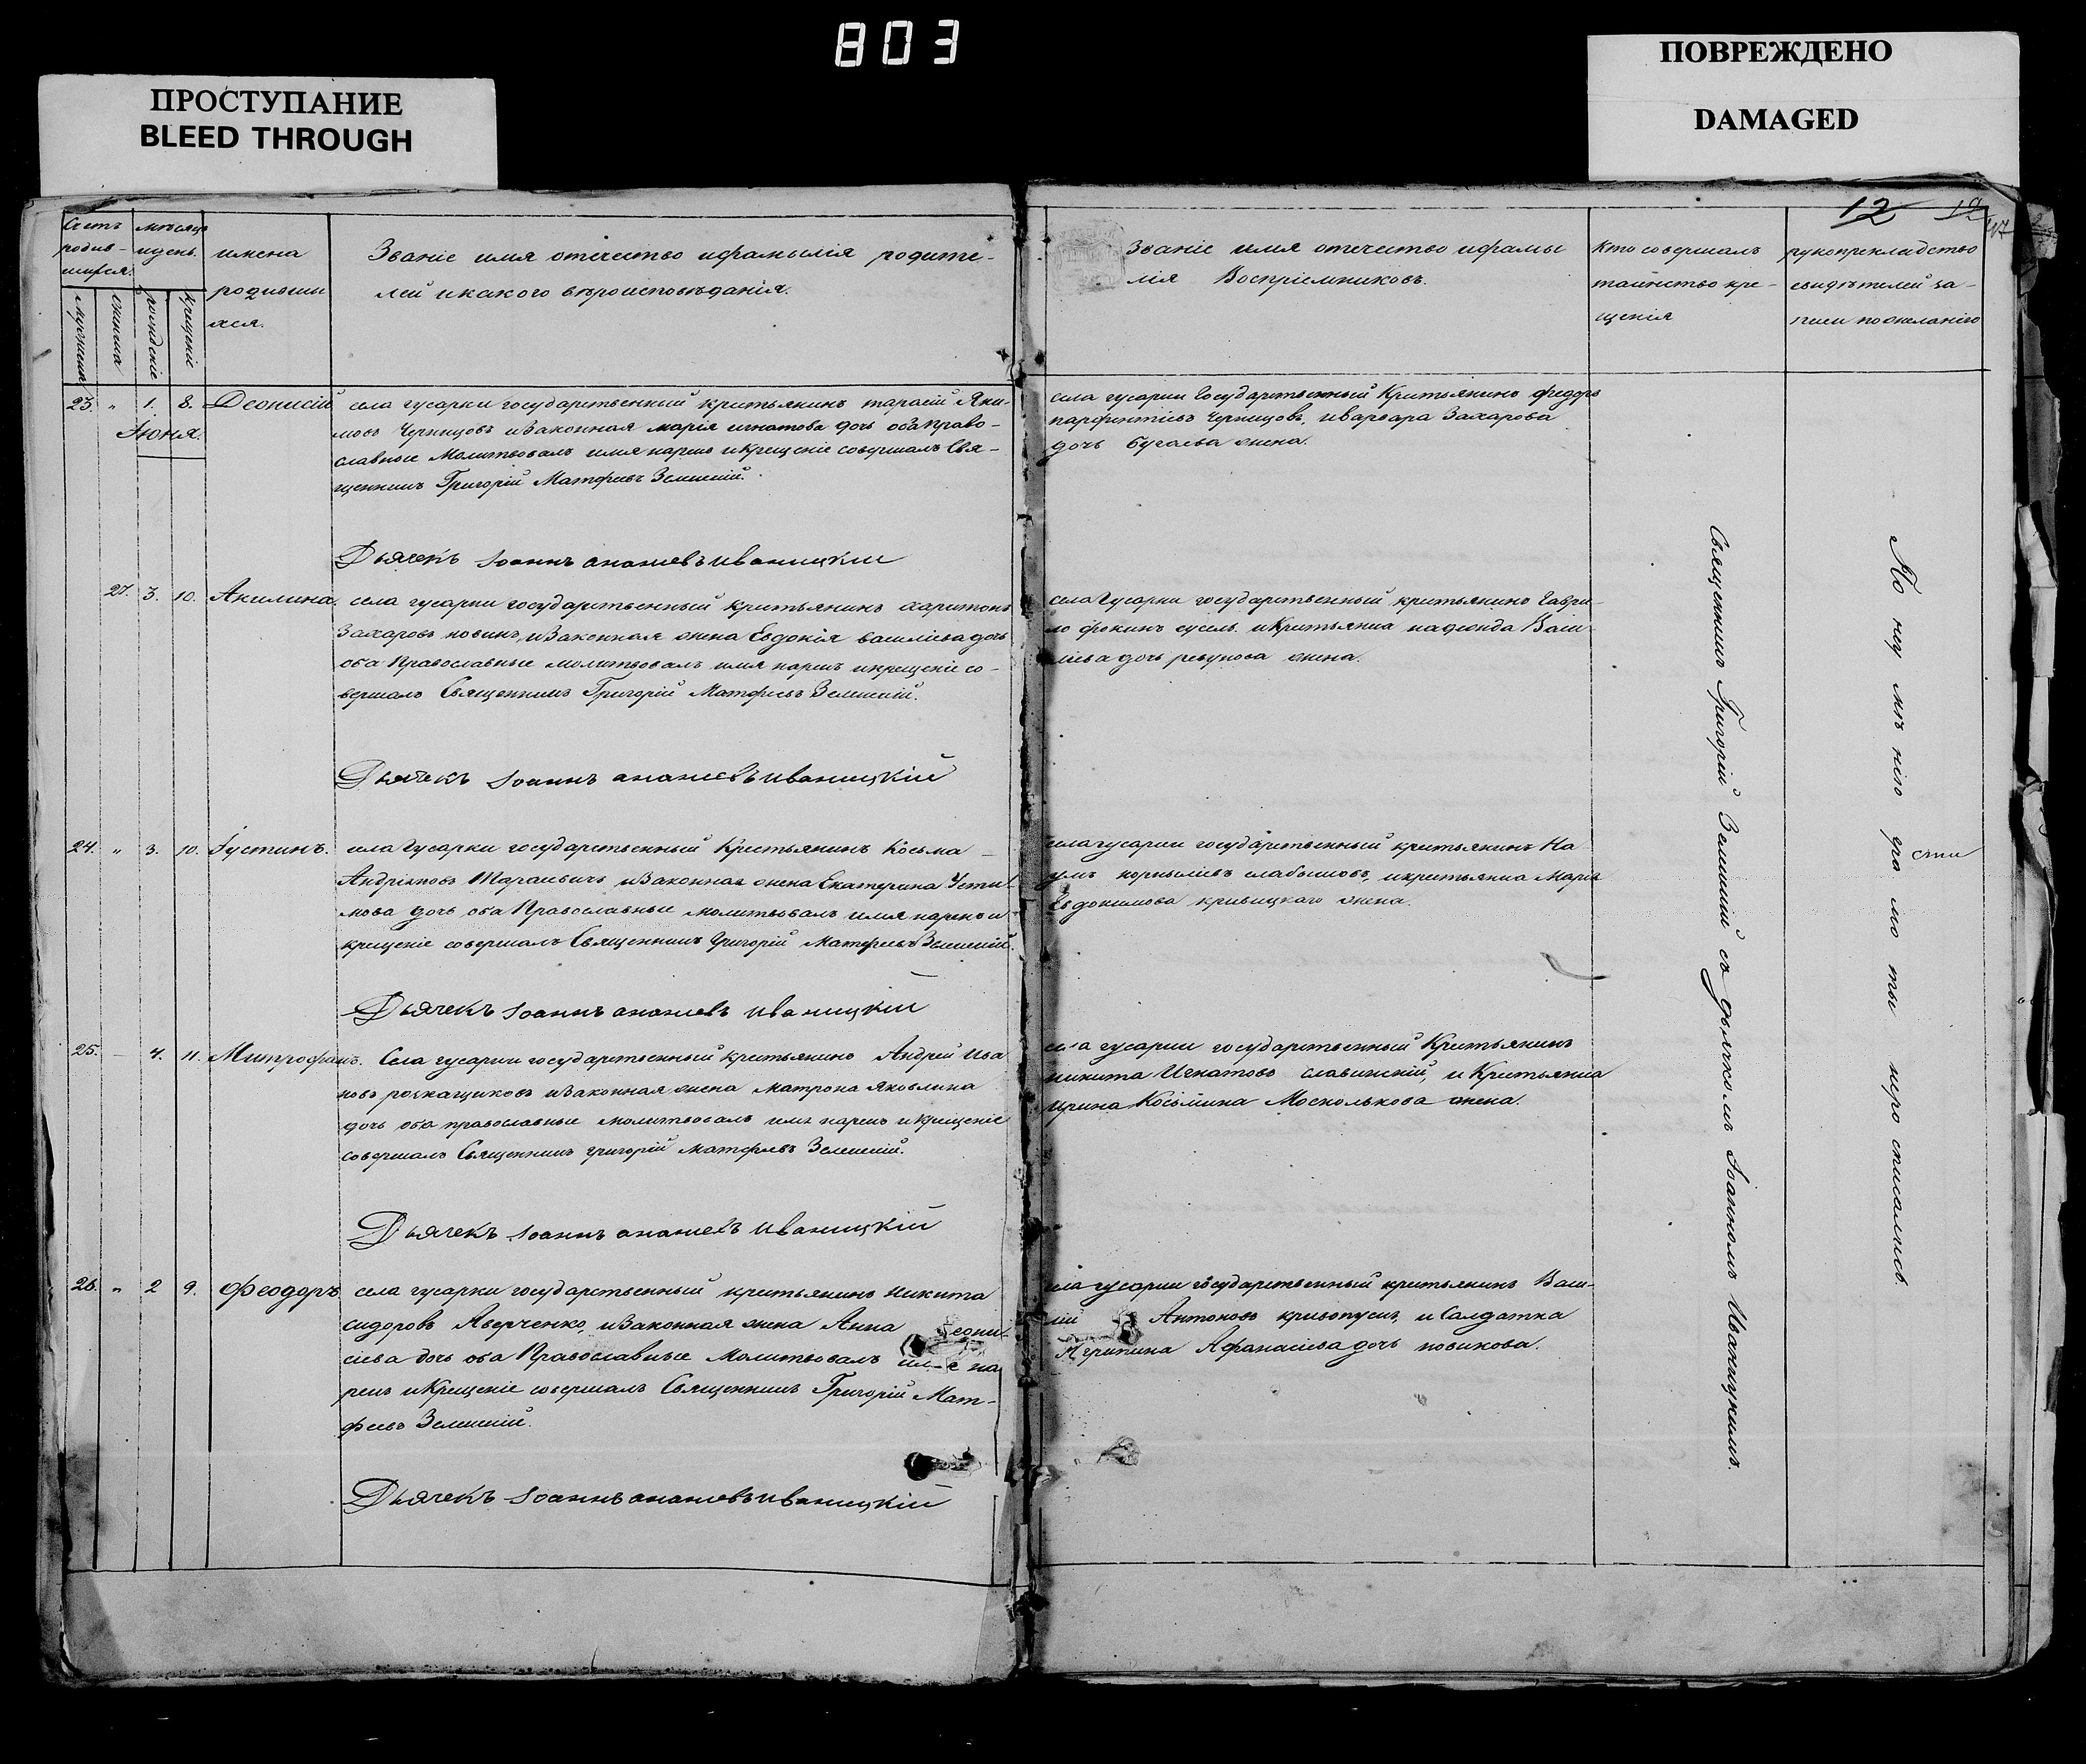 803
ПРОСТУПАНИЕ
BLEED THROUGH
ПОВРЕЖДЕНО
DAMAGED
12
Счетъ
родив-
шихся.
мѣсяцъ
и день.
имена
родивши
хся.
Званіе имя отечество и фамылія родите-
лей и какого вѣроисповѣданія.
мужеска
женска
рожденіе
крещеніе
Званіе имя отечество и фамы
лія Воспріемниковъ.
Кто совершалъ
таинство кре-
щенія
рукоприкладство
свидѣтелей за-
писи по желанію
23. " 1. 8. Деонисій
Іюня.
села гусарки государственный крестьянинъ тарасій Яки-
мовъ Чернцовъ и Законная марія игнатова дочь оба Право-
славные Молитвовалъ имя нарекъ и Крещеніе совершалъ Свя-
щенникъ Григорій Матфеевъ Зеленскій.
Дьячекъ Іоаннъ ананіевъ иваницкій
села гусарки Государственный Крестьянинъ федоръ
парфентіевъ Чернцовъ, и варвара Захарова
дочь бугаева жена.
27. 3. 10. Акилина.
села гусарки государственный крестьянинъ харитонъ
Захаровъ новикъ, и Законная жена Евдокія василіева дочь
оба Православные молитвовалъ имя нарекъ и крещеніе со-
вершалъ Священникъ Григорій Матфеевъ Зеленскій.
Дьячекъ Іоаннъ ананіевъ иваницкій
села Гусарки государственный крестьянинъ Гаври-
ло фокинъ сусель. и Крестьянка надежда Васи-
ліева дочь ревунова жена.
24. " 3. 10. Іустинъ.
села Гусарки государственный Крестьянинъ Косьма
Андріяновъ Тараневичъ и Законная жена Екатерина Усти-
мова дочь оба Православные молитвовалъ имя нарекъ и
крещеніе совершалъ Священникъ Григорій Матфеевъ Зеленскій.
Дьячекъ Іоаннъ ананіевъ иваницкій
села гусарки государственный крестьянинъ На
умъ корныліевъ слабышовъ, и крестьянка Марія
Евдокимова кривицкаго жена.
25. 4. 11. Митрофанъ.
Села гусарки государственный крестьянинъ Андрей Ива
новъ и Законная жена матрона Яковлина
дочь оба православные молитвовалъ имя нарекъ и крещеніе
совершалъ Священникъ григорій матфеевъ Зеленскій.
Дьячекъ Іоаннъ ананіевъ иваницкій
села гусарки государственный Крестьянинъ
никита Игнатовъ славинскій, и Крестьянка
ирина Косьмина Москолькова жена.
26. " 2 9. Феодоръ
села гусарки государственный крестьянинъ никита
сидоровъ Аверченко, и Законная жена Анна Деони-
сіева дочь оба Православные Молитвовалъ имя на
рекъ и Крещеніе совершалъ Священникъ Григорій Мат-
феевъ Зеленскій.
Дьячекъ Іоаннъ ананіевъ иваницкій
села гусарки государственный крестьянинъ Васи-
лій Антоновъ кривопускъ, и Салдатка
Агрипина Афанасіева дочь новикова.
Священникъ Григорій Зеленскій съ дьячкомъ Іоанномъ Иваницкимъ.
По неумѣнію грамоты неросписались.